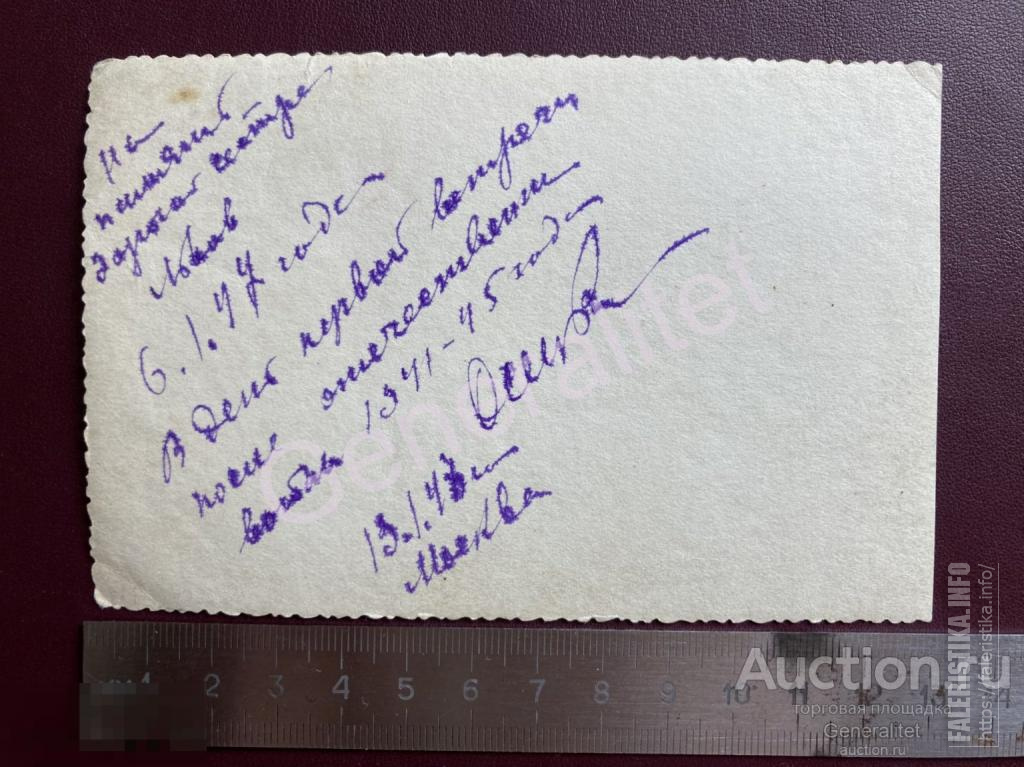 На
память
дорогой сестре
Львов
6.1.47 года
В день первой встречи
после отечественной
войны 1941-45 года
13.1.47 г.
Москва
Generalitet
1 2 3 4 5 6 7 8 9 10 11 12 13 14
Auction.ru
торговая площадка
Generalitet
auction.ru
FALERISTIKA.INFO
https://faleristika.info/